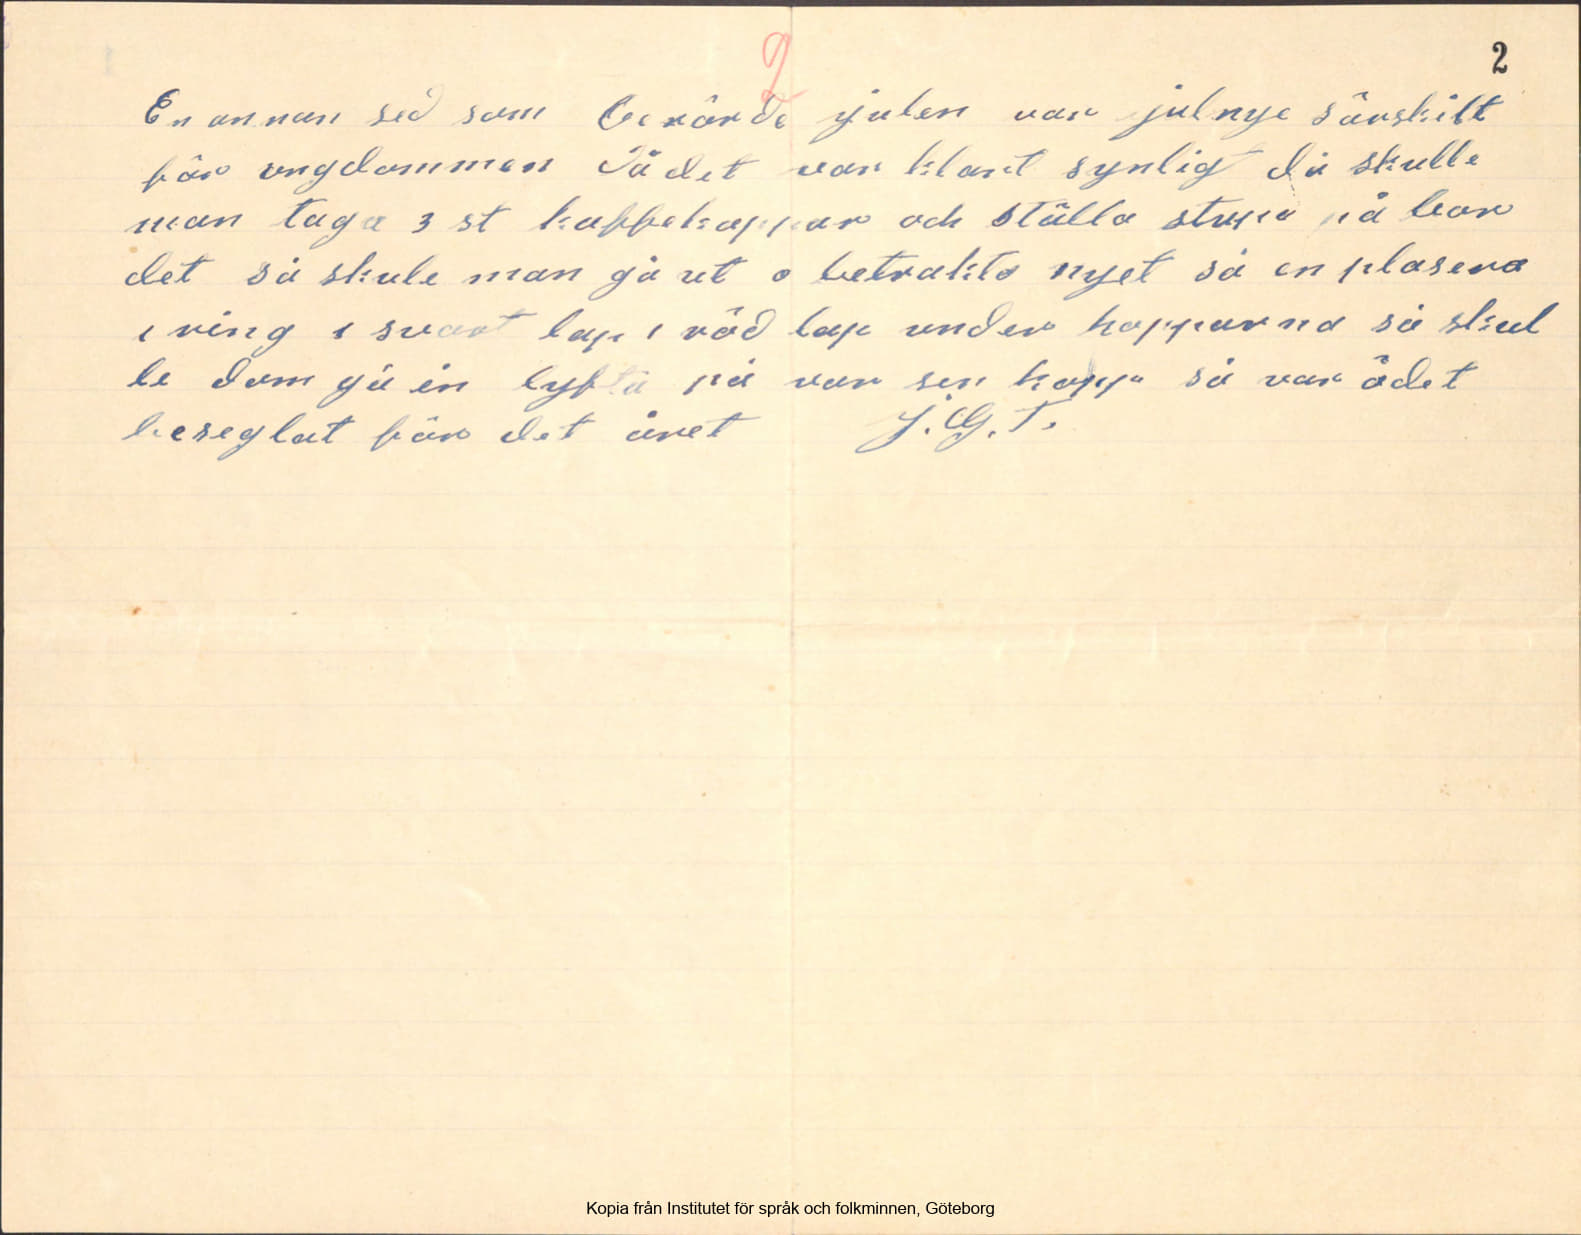 2
2
En annan sed som berörde julen var julnye särskilt
för ungdommen Då det var klart synlig då skulle
man taga 3 st kaffekoppar och ställa stupa på bor
det så skule man gå ut o betrakta nyet så en plasera
1 ring 1 svart lap 1 röd lap under kopparna så skul
le dom gå in lyfta på var sen kopp så var ödet
beseglat för det året J. G. T.
Kopia från Institutet för språk och folkminnen, Göteborg